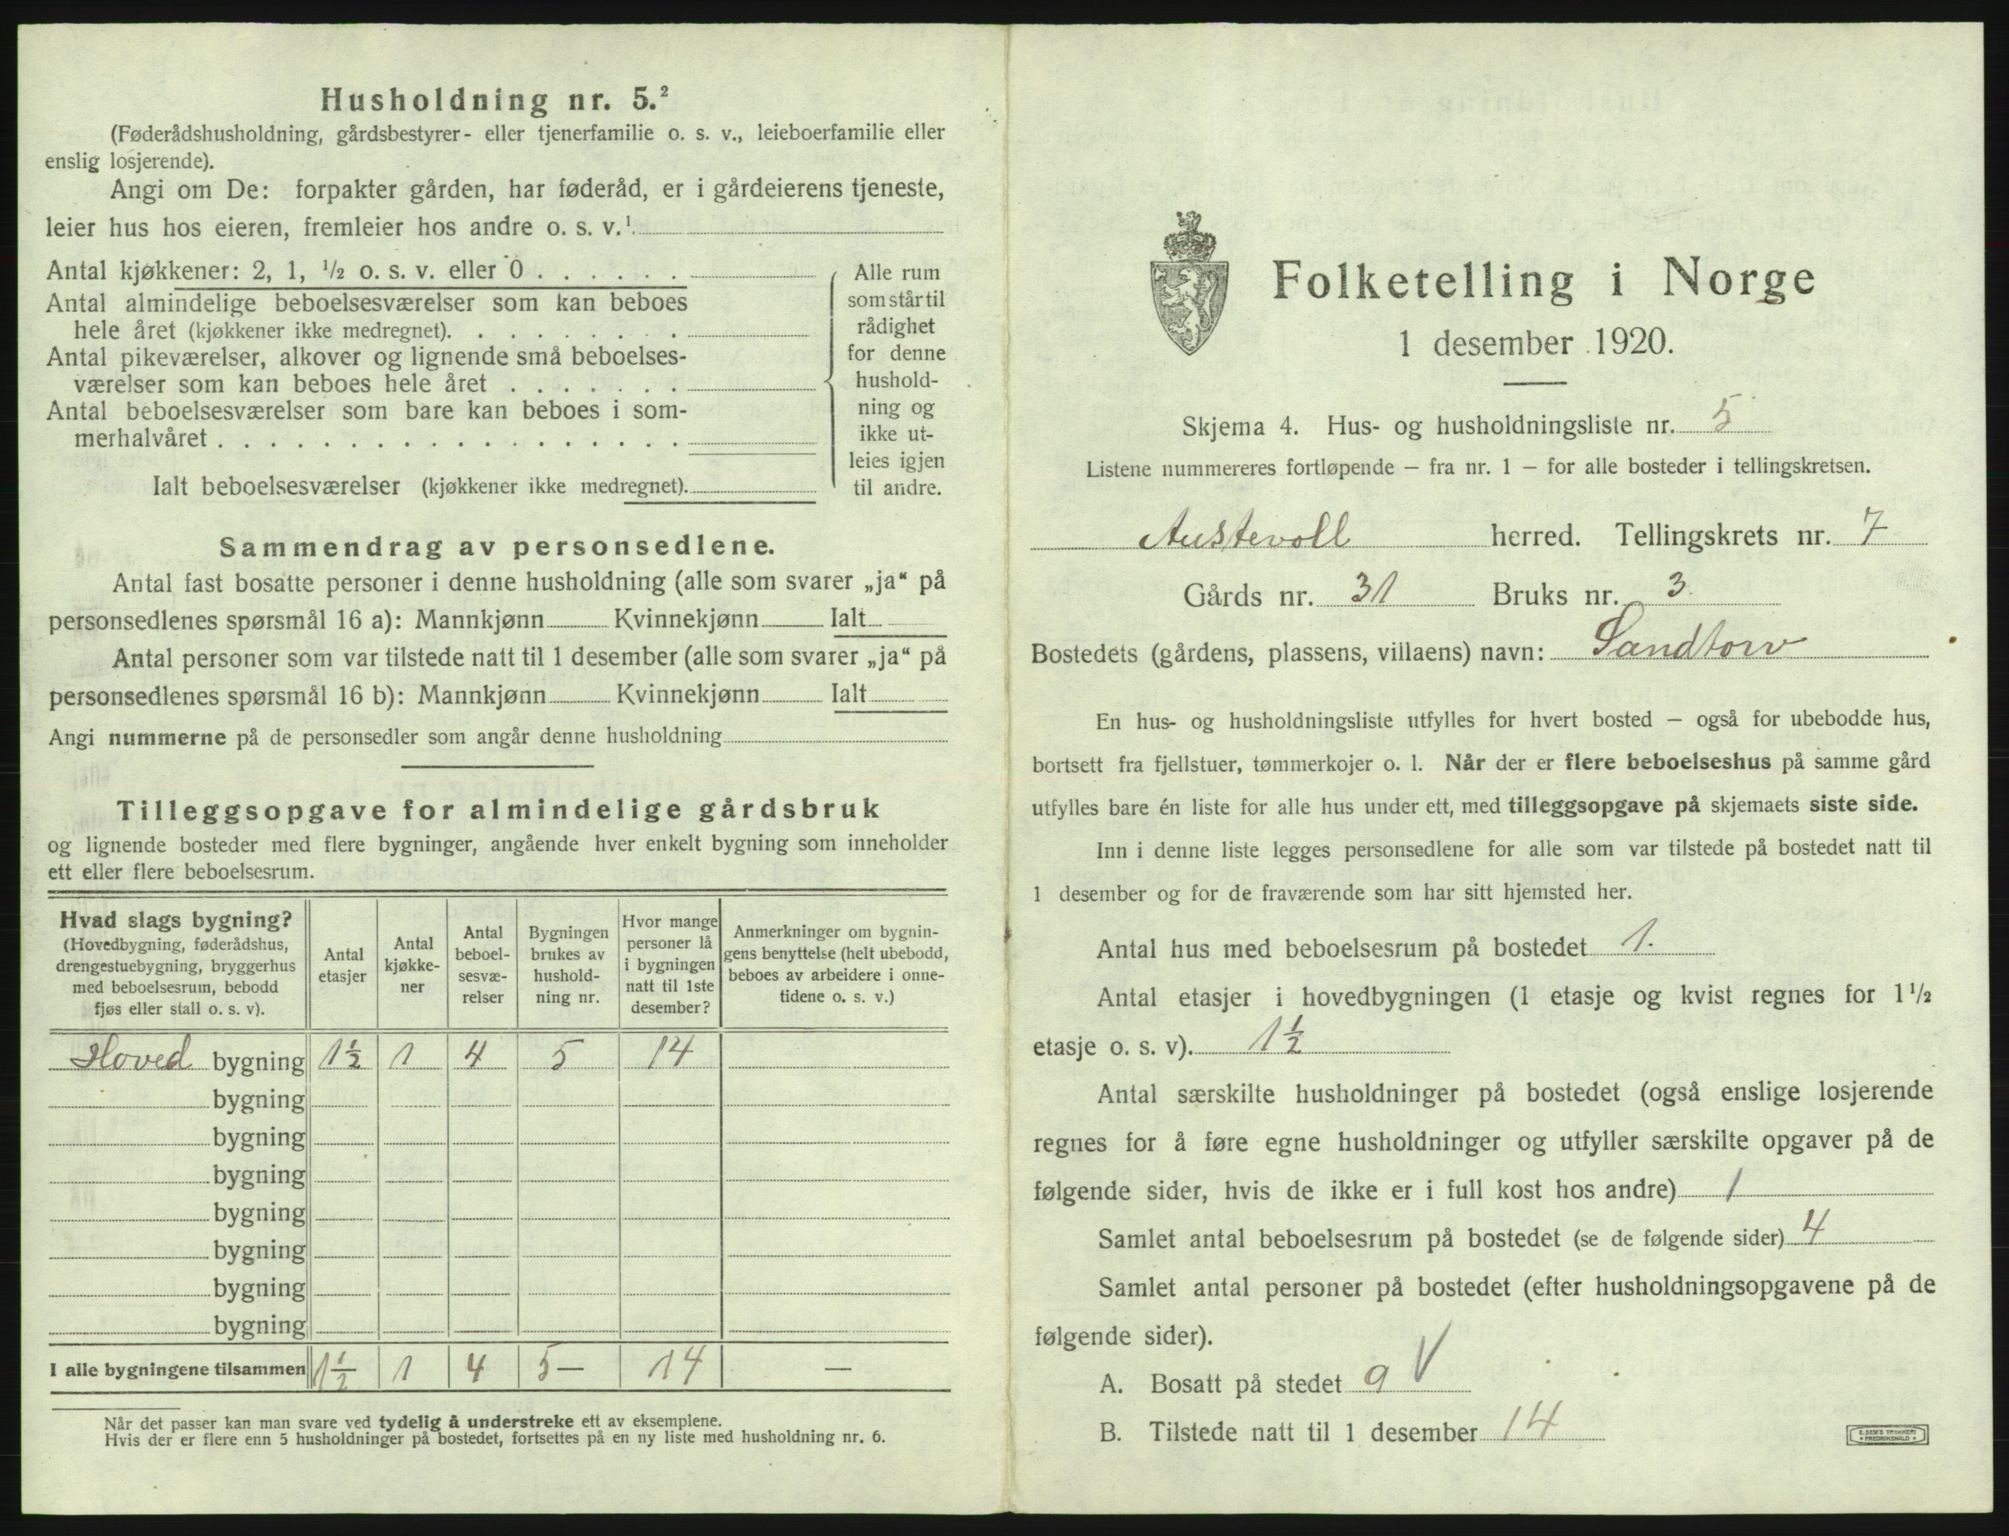 Husholdning nr. 5.²
(Føderådshusholdning, gårdsbestyrer- eller tjenerfamilie o. s. v., leieboerfamilie eller
enslig losjerende).
Angi om De: forpakter gården, har føderåd, er i gårdeierens tjeneste,
leier hus hos eieren, fremleier hos andre o. s. v.¹
Antal kjøkkener: 2, 1, ½ o. s. v. eller 0 . . . . . .
Antal almindelige beboelsesværelser som kan beboes
hele året (kjøkkener ikke medregnet). . . . . . . . .
Antal pikeværelser, alkover og lignende små beboelses-
værelser som kan beboes hele året . . . . . . .
Antal beboelsesværelser som bare kan beboes i som-
merhalvåret . . . . . . . . . . . . . . . . . .
Ialt beboelsesværelser (kjøkkener ikke medregnet).
Alle rum
som står til
rådighet
for denne
hushold-
ning og
ikke ut-
leies igjen
til andre.
Sammendrag av personsedlene.
Antal fast bosatte personer i denne husholdning (alle som svarer „ja“ på
personsedlenes spørsmål 16 a): Mannkjønn Kvinnekjønn Ialt
Antal personer som var tilstede natt til 1 desember (alle som svarer „ja“ på
personsedlenes spørsmål 16 b): Mannkjønn Kvinnekjønn Ialt
Angi nummerne på de personsedler som angår denne husholdning
Tilleggsopgave for almindelige gårdsbruk
og lignende bosteder med flere bygninger, angående hver enkelt bygning som inneholder
ett eller flere beboelsesrum.
Hvad slags bygning?
(Hovedbygning, føderådshus,
drengestuebygning, bryggerhus
med beboelsesrum, bebodd
fjøs eller stall o. s. v).
Antal
etasjer
Antal
kjøkke-
ner
Antal
beboel-
sesvæ-
relser
Bygningen
brukes av
hushold-
ning nr.
Hvor mange
personer lå
i bygningen
natt til 1ste
desember?
Anmerkninger om bygnin-
gens benyttelse (helt ubebodd,
beboes av arbeidere i onne-
tidene o. s. v.)
Hoved bygning 1½ 1 4 5 14
bygning
bygning
bygning
bygning
bygning
bygning
bygning
I alle bygningene tilsammen 1½ 1 4 5 — 14 —
Når det passer kan man svare ved tydelig å understreke ett av eksemplene.
Hvis der er flere enn 5 husholdninger på bostedet, fortsettes på en ny liste med husholdning nr. 6.
Folketelling i Norge
1 desember 1920.
Skjema 4. Hus- og husholdningsliste nr. 5
Listene nummereres fortløpende – fra nr. 1 – for alle bosteder i tellingskretsen.
Austevoll herred. Tellingskrets nr. 7
Gårds nr. 31 Bruks nr. 3
Bostedets (gårdens, plassens, villaens) navn: Sandtorv
En hus- og husholdningsliste utfylles for hvert bosted – også for ubebodde hus,
bortsett fra fjellstuer, tømmerkojer o. l. Når der er flere beboelseshus på samme gård
utfylles bare én liste for alle hus under ett, med tilleggsopgave på skjemaets siste side.
Inn i denne liste legges personsedlene for alle som var tilstede på bostedet natt til
1 desember og for de fraværende som har sitt hjemsted her.
Antal hus med beboelsesrum på bostedet 1.
Antal etasjer i hovedbygningen (1 etasje og kvist regnes for 1½
etasje o. s. v). 1½
Antal særskilte husholdninger på bostedet (også enslige losjerende
regnes for å føre egne husholdninger og utfyller særskilte opgaver på de
følgende sider, hvis de ikke er i full kost hos andre) 1
Samlet antal beboelsesrum på bostedet (se de følgende sider) 4
Samlet antal personer på bostedet (efter husholdningsopgavene på de
følgende sider).
A. Bosatt på stedet 9 V
B. Tilstede natt til 1 desember 14